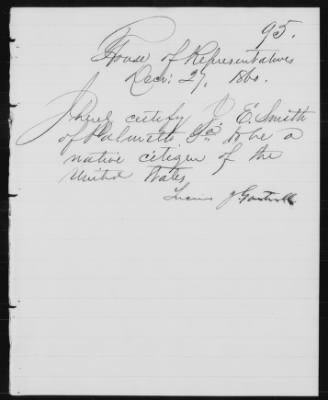 95.
House of Representatives
Decr: 27, 1860.
I hereby certify J. E. Smith
of Palmetto Ga. to be a
native citizen of the
United States
Lucius J Gartrell